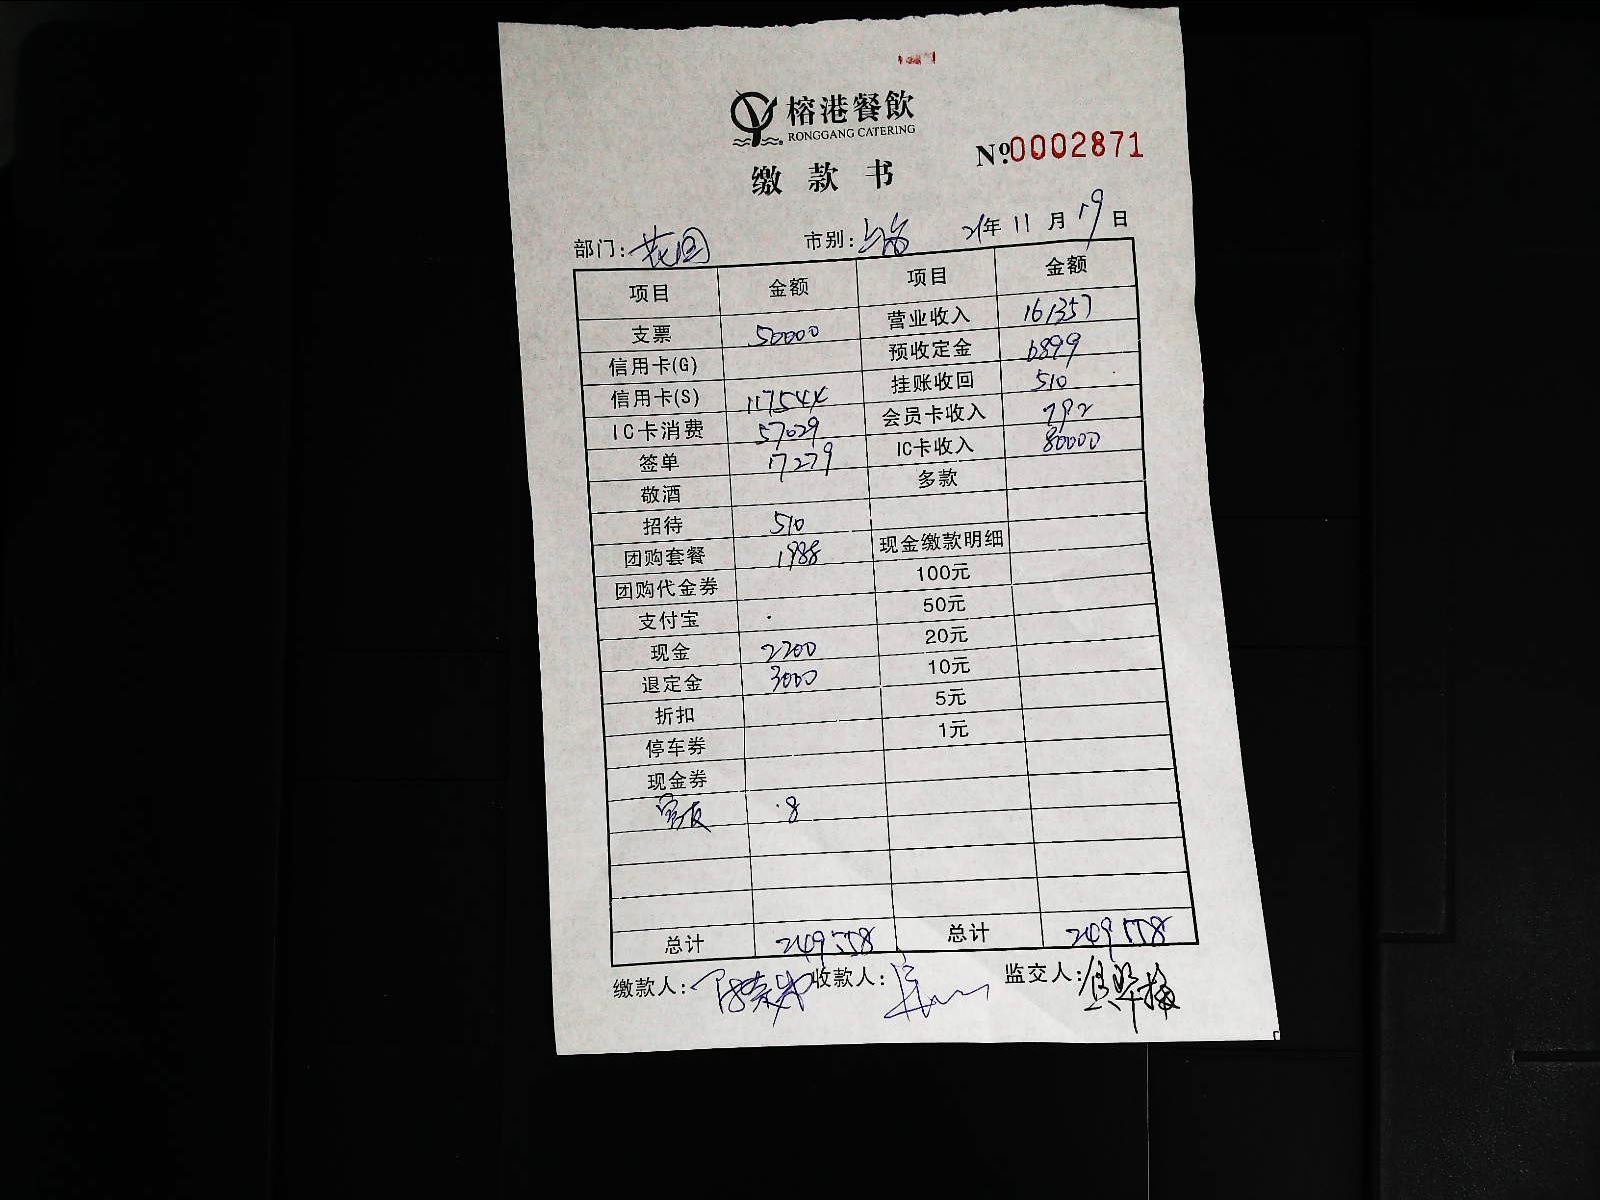 榕港餐飲
RONGGANG CATERING
缴款书
№0002871
部门:花园 市别: 21年11月19日
项目 金额 项目 金额
支票 50000 营业收入 161357
信用卡(G) 预收定金 6899
信用卡(S) 117544 挂账收回 510
IC卡消费 57029 会员卡收入 792
签单 17279 IC卡收入 80000
敬酒 多款
招待 510
团购套餐 1988 现金缴款明细
团购代金券 100元
支付宝 50元
现金 2200 20元
退定金 3000 10元
折扣 5元
停车券 1元
现金券
8
总计 249558 总计 249558
缴款人: 收款人: 监交人: